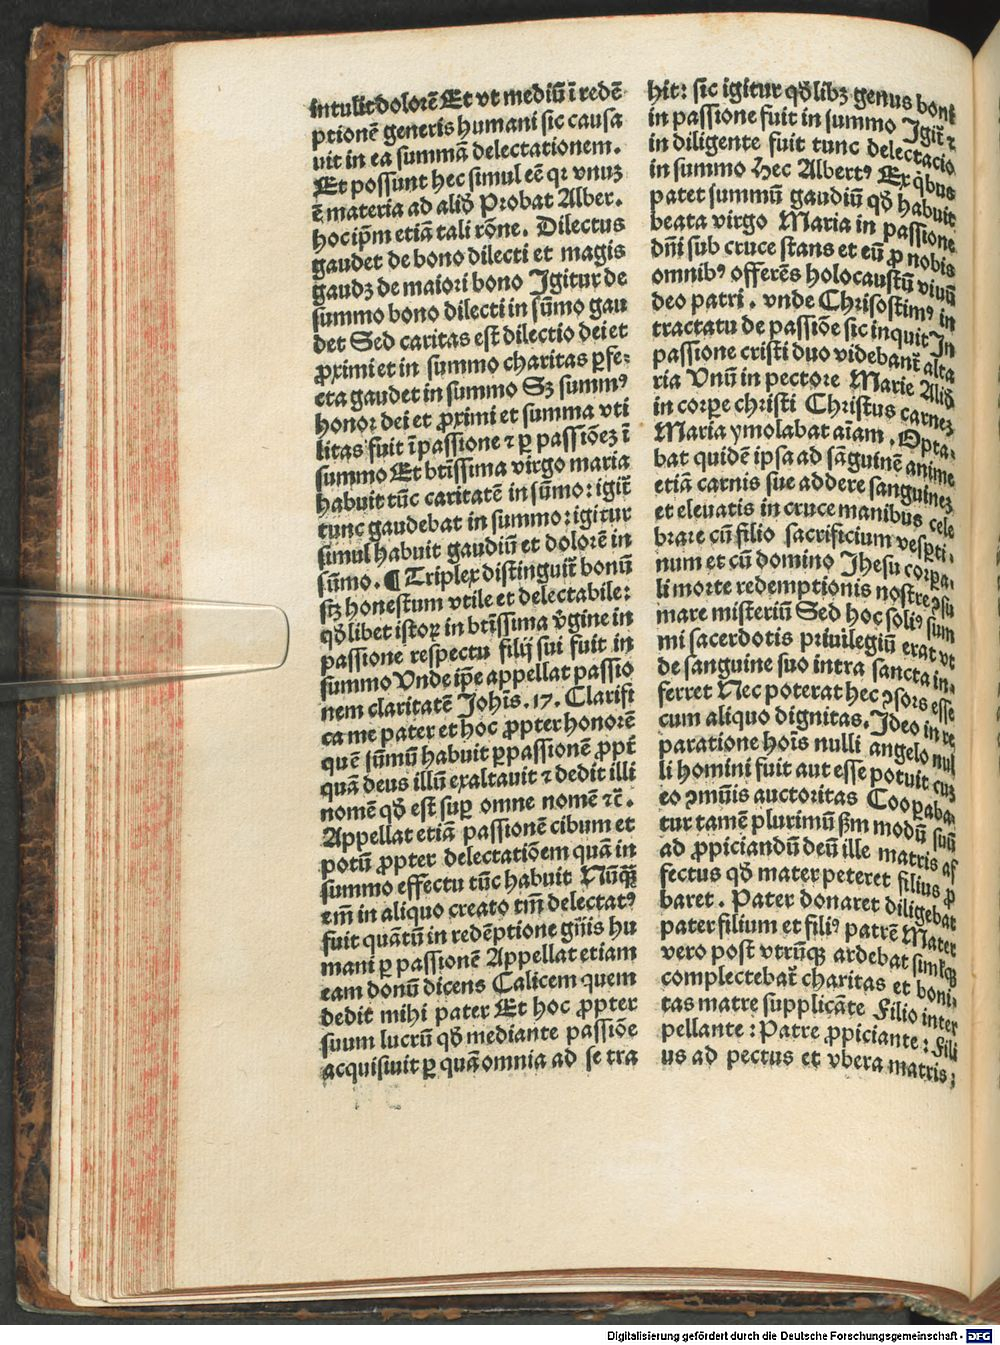 intulit dolorē Et vt mediū ī redē
ptionē generis humani sic causa
uit in ea summā delectationem.
Et possunt hec simul eē qꝛ vnuꝫ
ē materia ad aliḋ Probat Alber.
hoc ip̄m etiā tali rōne. Dilectus
gaudet de bono dilecti et magis
gaudꝫ de maiori bono Igitur de
summo bono dilecti in sūmo gau
det Sed caritas est dilectio dei et
ꝓximi et in summo charitas ꝑfe⸗
cta gaudet in summo Sꝫ summꝰ
honor dei et ꝓximi et summa vti
litas fuit ī passione ⁊ ꝑ passiōeꝫ ī
summo Et btīssima virgo maria
habuit tūc caritatē in sūmo: igit̄
tunc gaudebat in summo: igitur
simul habuit gaudiū et dolorē in
sūmo. ¶ Triplex distinguit̄ bonū
sꝫ honestum vtile et delectabile:
qḋlibet istoꝝ in btīssima v̄gine in
passione respectu filij sui fuit in
summo Vnde ip̄e appellat passio
nem claritatē Joh̄is. 17. Clarifi
ca me pater et hoc ꝓpter honorē
quē sūmū habuit ꝑ passionē ꝓpt̄
quā deus illū exaltauit ⁊ dedit illi
nomē qḋ est suꝑ omne nomē ⁊c̄.
Appellat etiā passionē cibum et
potū ꝓpter delectatiōem quā in
summo effectu tūc habuit Nūqꝫ̄
em̄ in aliquo creato tm̄ delectatꝰ
fuit quātū in redēptione gn̄is hu
mani ꝑ passionē Appellat etiam
eam donū dicens Calicem quem
dedit mihi pater Et hoc ꝓpter
suum lucrū qḋ mediante passiōe
acquisiuit ꝑ quā omnia ad se tra
hit: sic igitur qḋlibꝫ genus boni
in passione fuit in summo Igit̄ ⁊
in diligente fuit tunc delectacio
in summo Hec Albertꝰ Ex q̇bus
patet summū gaudiū qḋ habuit
beata virgo Maria in passione
dn̄i sub cruce stans et eū ꝓ nobis
omnibꝰ offerēs holocaustū viuū
deo patri. vnde Chrisostimꝰ in
tractatu de passiōe sic inquit In
passione cristi duo videbant̄ alta
ria Vnū in pectore Marie Aliḋ
in corꝑe christi Christus carneꝫ
Maria ymolabat aīam. Opta⸗
bat quidē ipsa ad sāguinē anime
etiā carnis sue addere sanguineꝫ
et eleuatis in cruce manibus cele
brare cū filio sacrificium vesꝑti⸗
num et cū domino Jhesu corꝑa⸗
li morte redemptionis nostre ꝯsu
mare misteriū Sed hoc soliꝰ sum
mi sacerdotis priuilegiū erat vt
de sanguine suo intra sancta in⸗
ferret Nec poterat hec ꝯsors esse
cum aliquo dignitas. Ideo in re
paratione hoīs nulli angelo nul
li homini fuit aut esse potuit cuꝫ
eo ꝯmūis auctoritas Cooꝑaba⸗
tur tamē plurimū ßm modū suū
ad ꝓpiciandū deū ille matris af
fectus qḋ mater peteret filius ꝓ
baret. Pater donaret diligebat
pater filium et filiꝰ patrē Mater
vero post vtrūqꝫ ardebat siml̄qꝫ
complectebat̄ charitas et boni⸗
tas matre supplicāte Filio inter
pellante: Patre ꝓpiciante: Fili
us ad pectus et vbera matris:
Digitalisierung gefördert durch die Deutsche Forschungsgemeinschaft - DFG